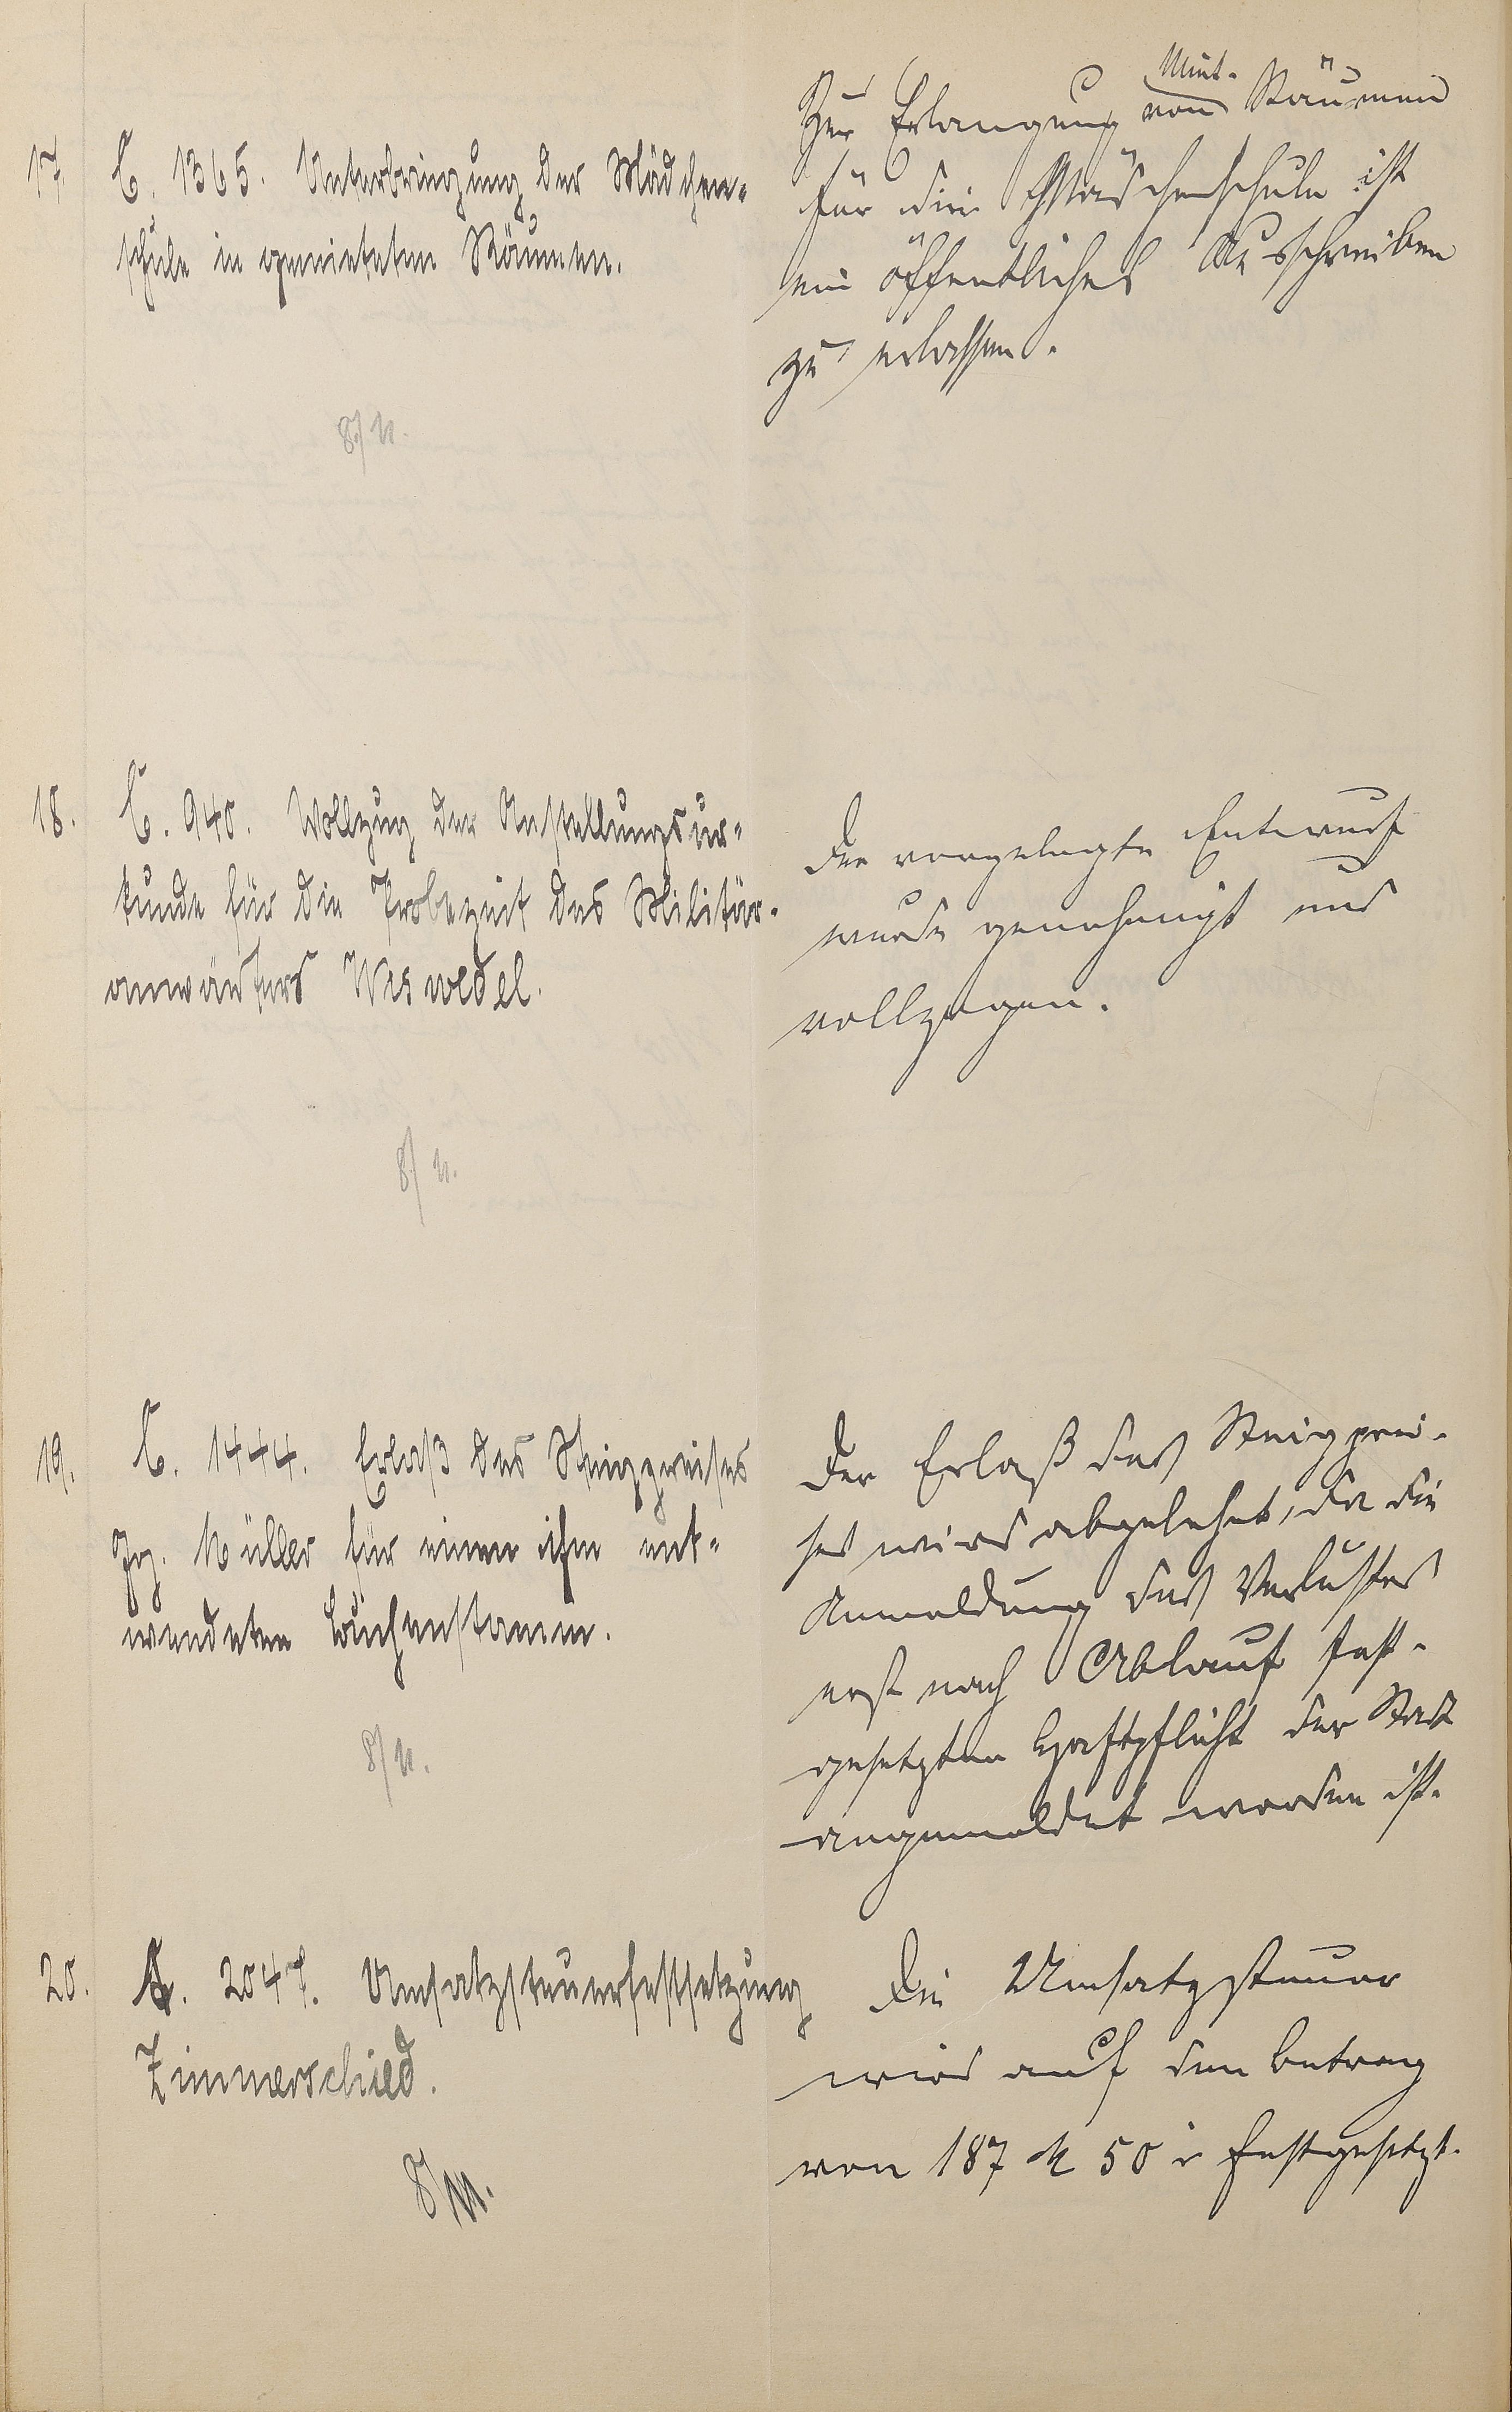 17. C. 1365. Unterbringung der Mädchen-
schule in gemieteten Räumen.
8/11.
Miet-
Zur Erlangung von Räumen
für die Mädchenschule ist
ein öffentliches Ausschreiben
zu erlassen.
18. C. 940. Vollzug der Anstellungsur-
kunde für die Probezeit des Militär-
anwärters Wiswedel.
8/11.
Der vorgelegte Entwurf
wurde genehmigt und
vollzogen.
19. C. 1444. Erlaß des Steigpreises
Jg. Müller für einen ihm ent-
wendeten Buchenstamm.
8/11.
Der Erlaß des Steigprei-
ses wird abgelehnt, da die
Anmeldung des Verlustes
erst nach Ablauf fest-
gesetzten Haftpflicht der Stadt
angemeldet worden ist.
20. A. 2047. Umsatzsteuerfestsetzung
Zimmerschied.
8/11.
Die Umsatzsteuer
wird auf den Betrag
von 187 M 50 festgesetzt.